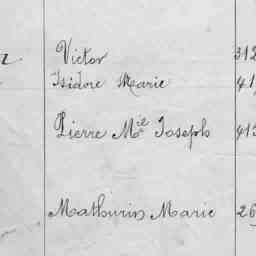 Victor 312
Isidore Marie 41
Pierre Mie Joseph 413
Mathurin Marie 26